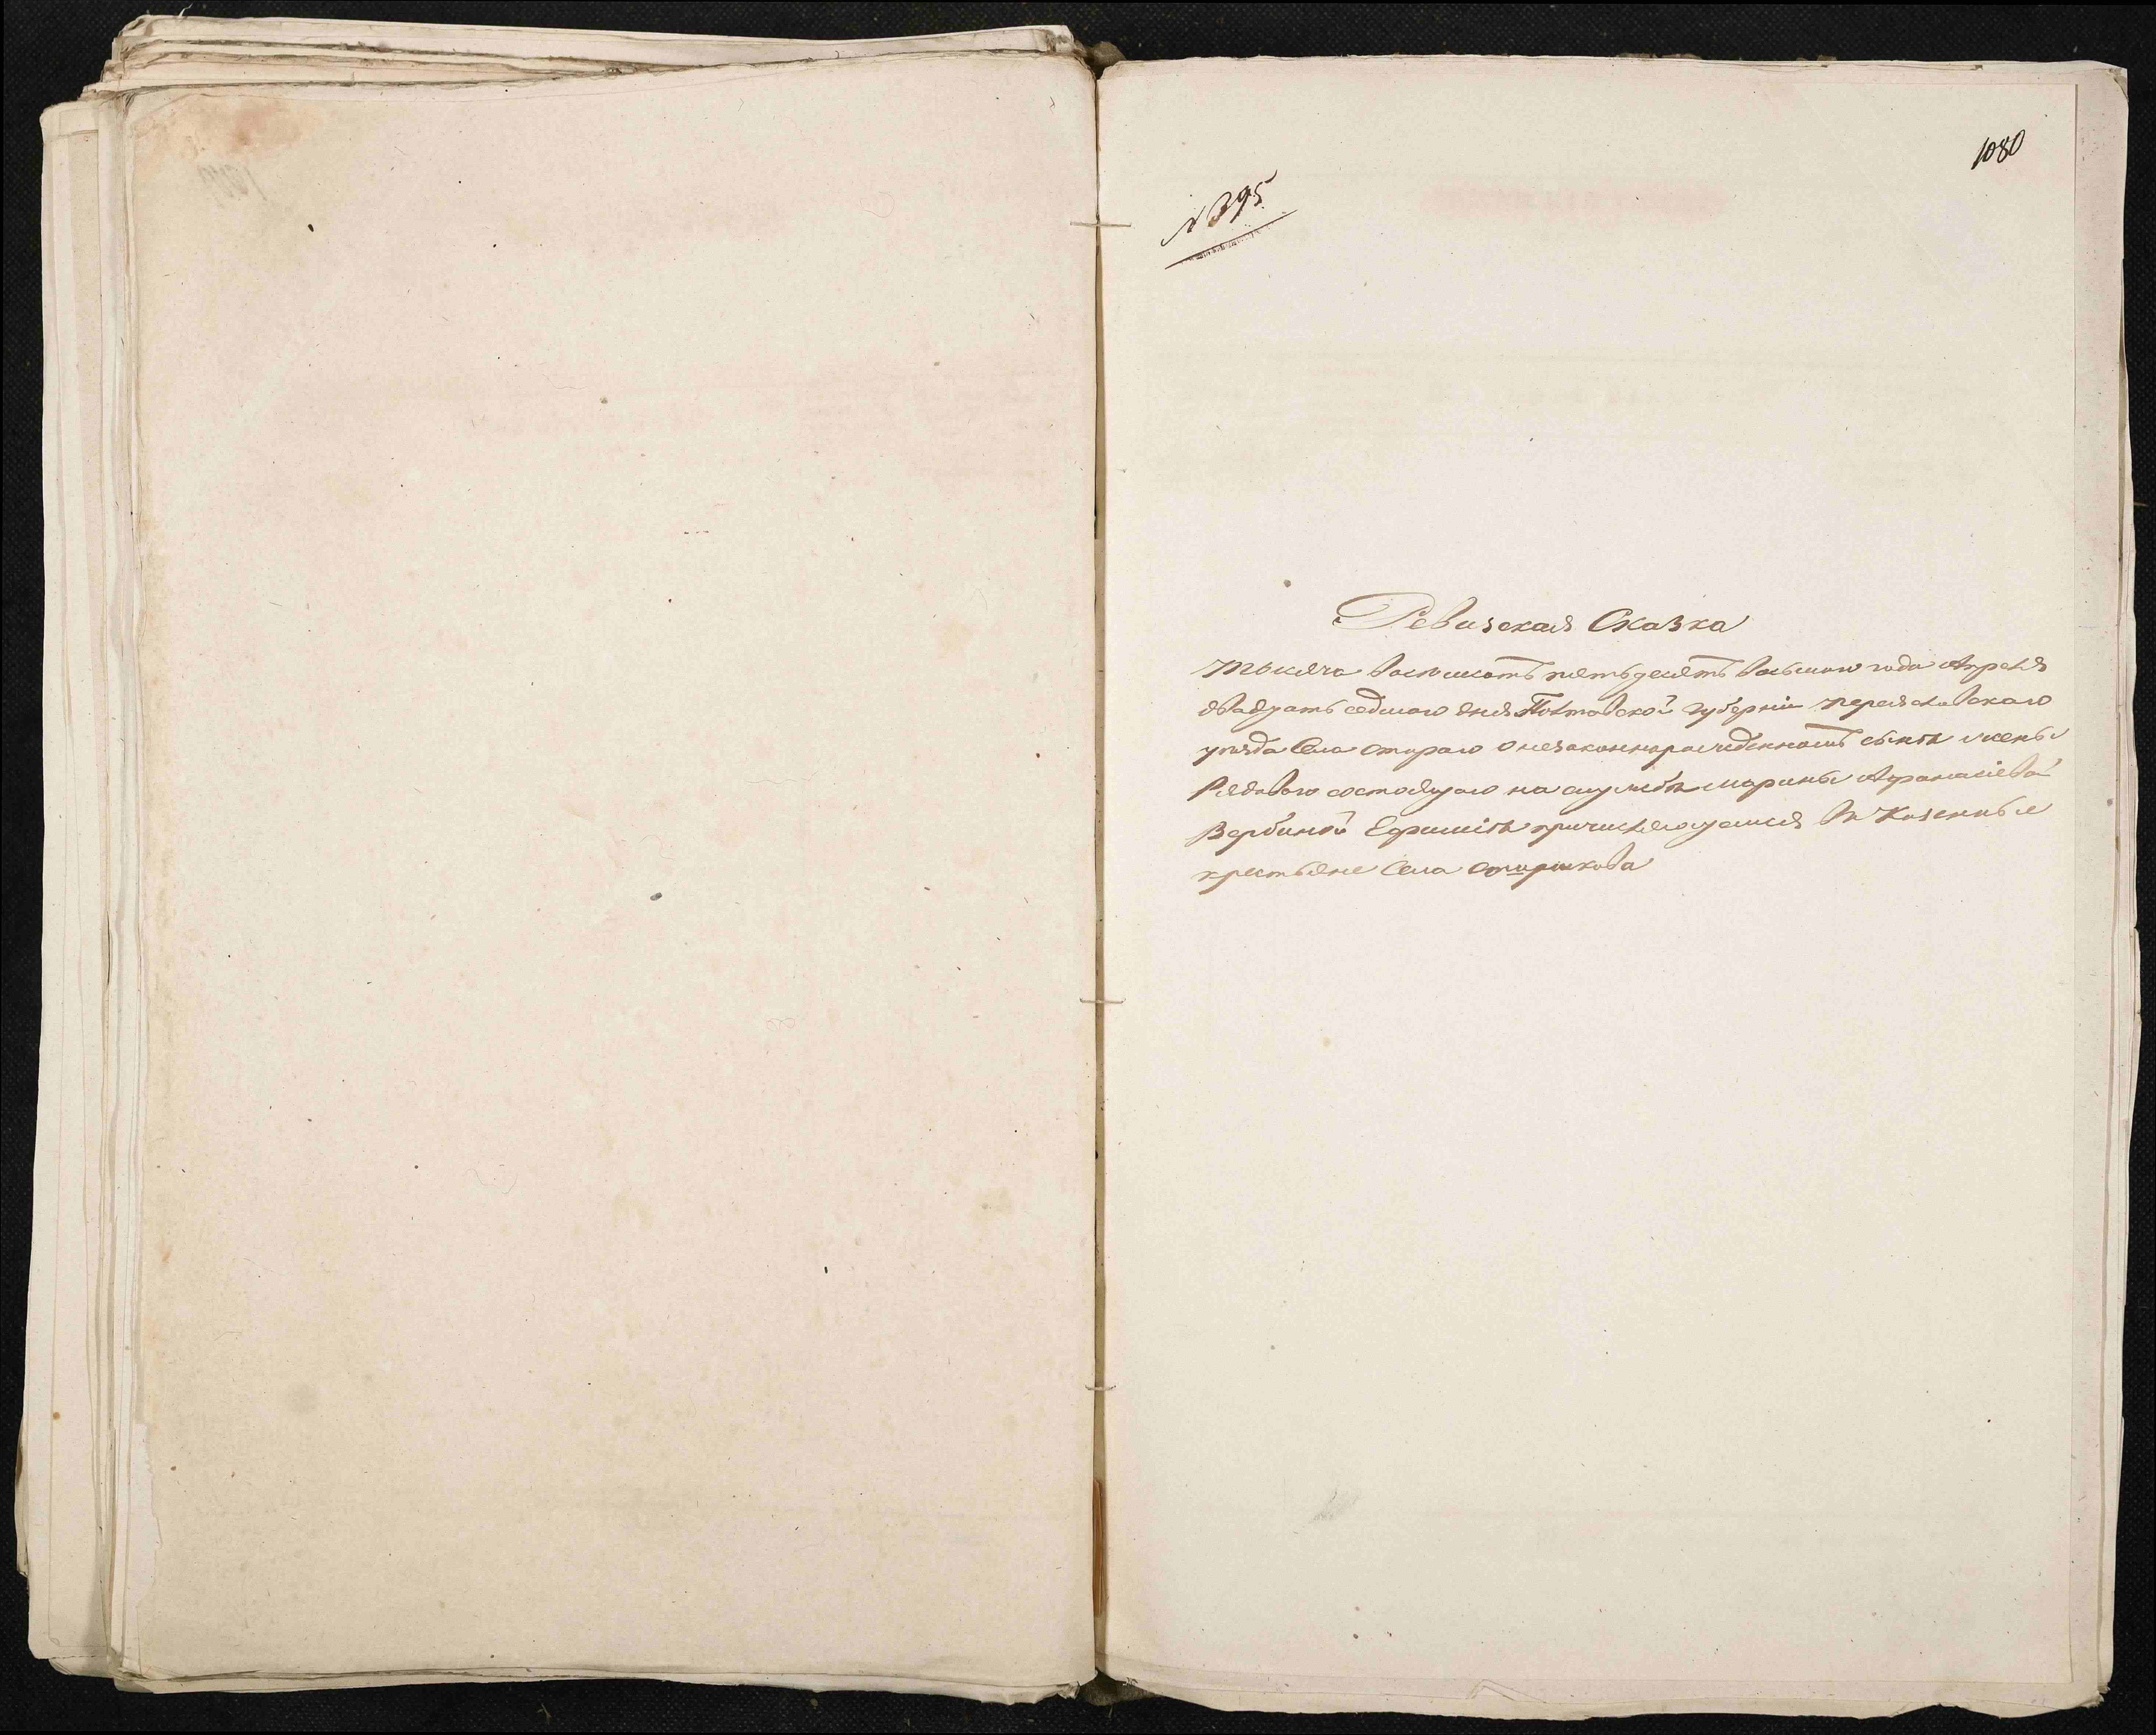 1080
№ 395
Ревизская Сказка
тысяча восемсотъ пятьдесятъ восьмого года Апреля
двадцать седмаго дня Полтавской губернiи Переяславскаго
уезда Села Стараго о незаконнорожденномъ сынѣ жены
Рядоваго состоящаго на службѣ Марины Афанасiевой
Вербиной Ефимiѣ причисляющемся въ Казенные
крестьяне Села